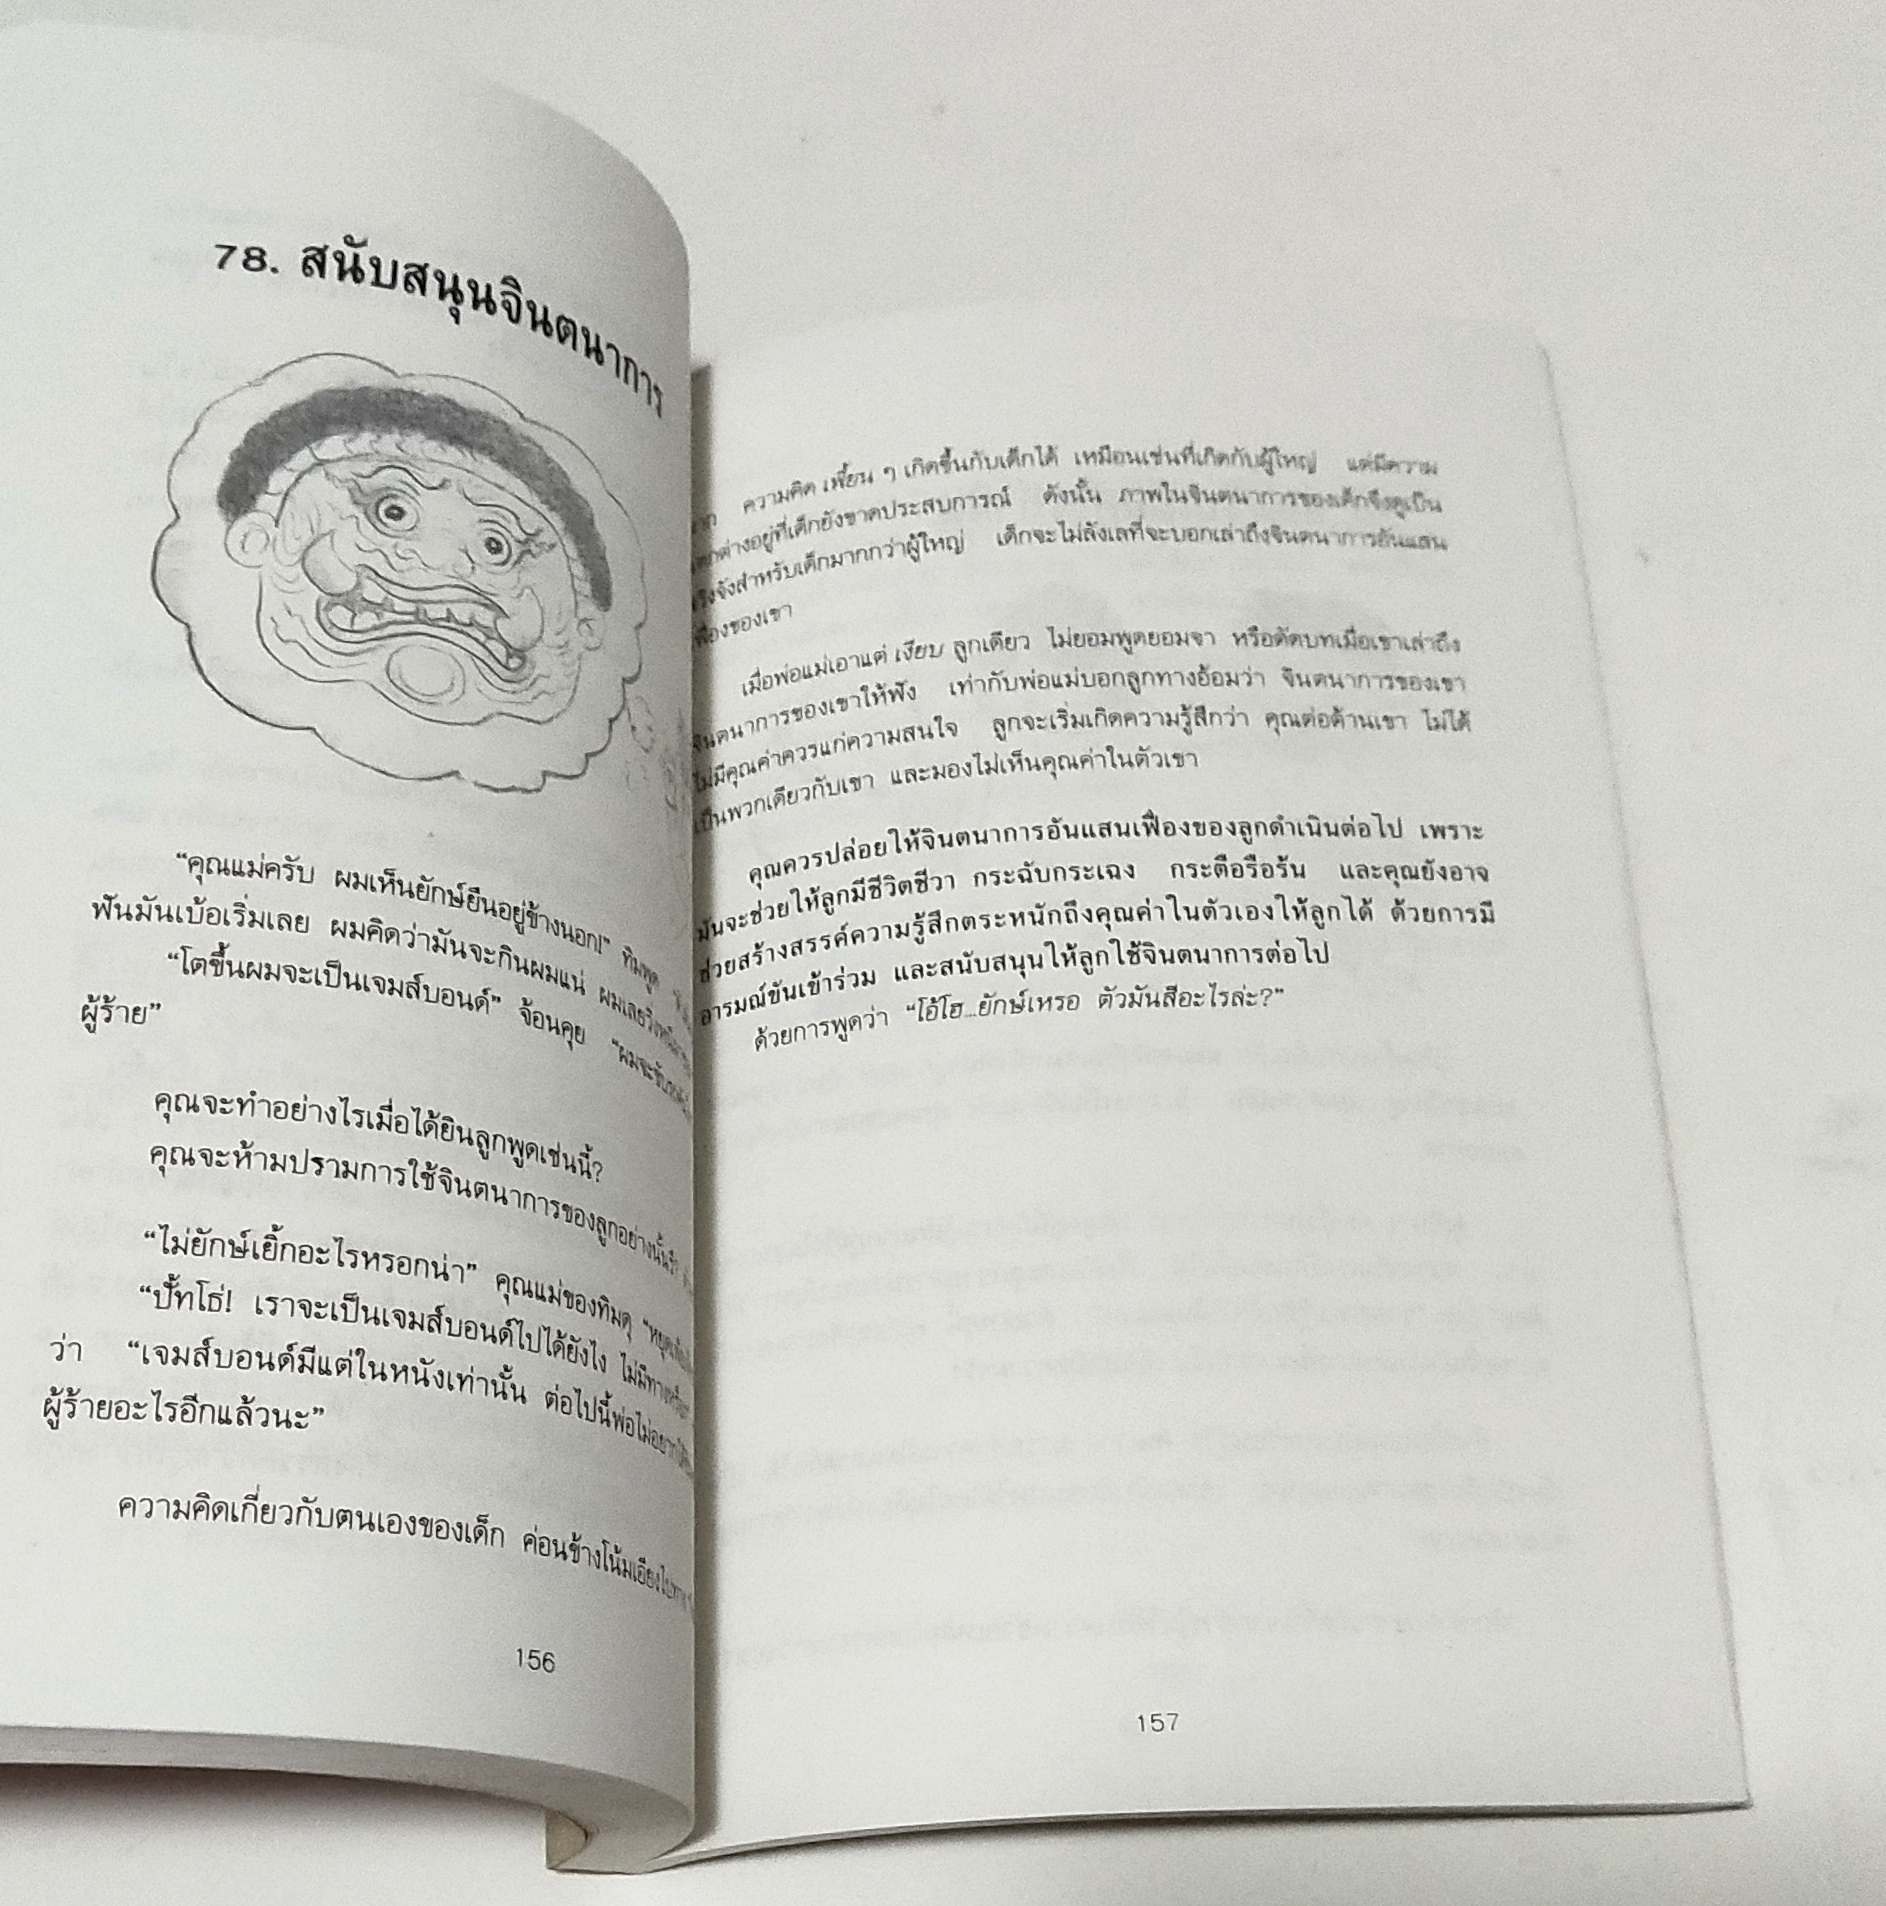 78. สนับสนุนจินตนาการ
“คุณแม่ครับ ผมเห็นยักษ์ยืนอยู่ข้างนอก!” ทิมพูด
ฟันมันเบ้อเริ่มเลย ผมคิดว่ามันจะกินผมแน่ ผมเลยวิ่งหนี
“โตขึ้นผมจะเป็นเจมส์บอนด์” จ้อนคุย “ผมจะขับ
ผู้ร้าย”
คุณจะทำอย่างไรเมื่อได้ยินลูกพูดเช่นนี้?
คุณจะห้ามปรามการใช้จินตนาการของลูกอย่างนั้นรึ?
“ไม่ยักษ์เยิ้กอะไรหรอกน่า” คุณแม่ของทิมดุ “หยุด
“ปั๊ทโธ่! เราจะเป็นเจมส์บอนด์ไปได้ยังไง ไม่มีทาง
ว่า “เจมส์บอนด์มีแต่ในหนังเท่านั้น ต่อไปนี้พ่อไม่อยาก
ผู้ร้ายอะไรอีกแล้วนะ”
ความคิดเกี่ยวกับตนเองของเด็ก ค่อนข้างโน้มเอียงไปทาง
156
ความคิด เพี้ยน ๆ เกิดขึ้นกับเด็กได้ เหมือนเช่นที่เกิดกับผู้ใหญ่ แต่มีความ
แตกต่างอยู่ที่เด็กยังขาดประสบการณ์ ดังนั้น ภาพในจินตนาการของเด็กจึงดูเป็น
จริงจังสำหรับเด็กมากกว่าผู้ใหญ่ เด็กจะไม่ลังเลที่จะบอกเล่าถึงจินตนาการอันแสน
เฟื่องของเขา
เมื่อพ่อแม่เอาแต่ เงียบ ลูกเดียว ไม่ยอมพูดยอมจา หรือตัดบทเมื่อเขาเล่าถึง
จินตนาการของเขาให้ฟัง เท่ากับพ่อแม่บอกลูกทางอ้อมว่า จินตนาการของเขา
ไม่มีคุณค่าควรแก่ความสนใจ ลูกจะเริ่มเกิดความรู้สึกว่า คุณต่อต้านเขา ไม่ได้
เป็นพวกเดียวกับเขา และมองไม่เห็นคุณค่าในตัวเขา
คุณควรปล่อยให้จินตนาการอันแสนเฟื่องของลูกดำเนินต่อไป เพราะ
มันจะช่วยให้ลูกมีชีวิตชีวา กระฉับกระเฉง กระตือรือร้น และคุณยังอาจ
ช่วยสร้างสรรค์ความรู้สึกตระหนักถึงคุณค่าในตัวเองให้ลูกได้ ด้วยการมี
อารมณ์ขันเข้าร่วม และสนับสนุนให้ลูกใช้จินตนาการต่อไป
ด้วยการพูดว่า “โอ้โฮ...ยักษ์เหรอ ตัวมันสีอะไรล่ะ?”
157